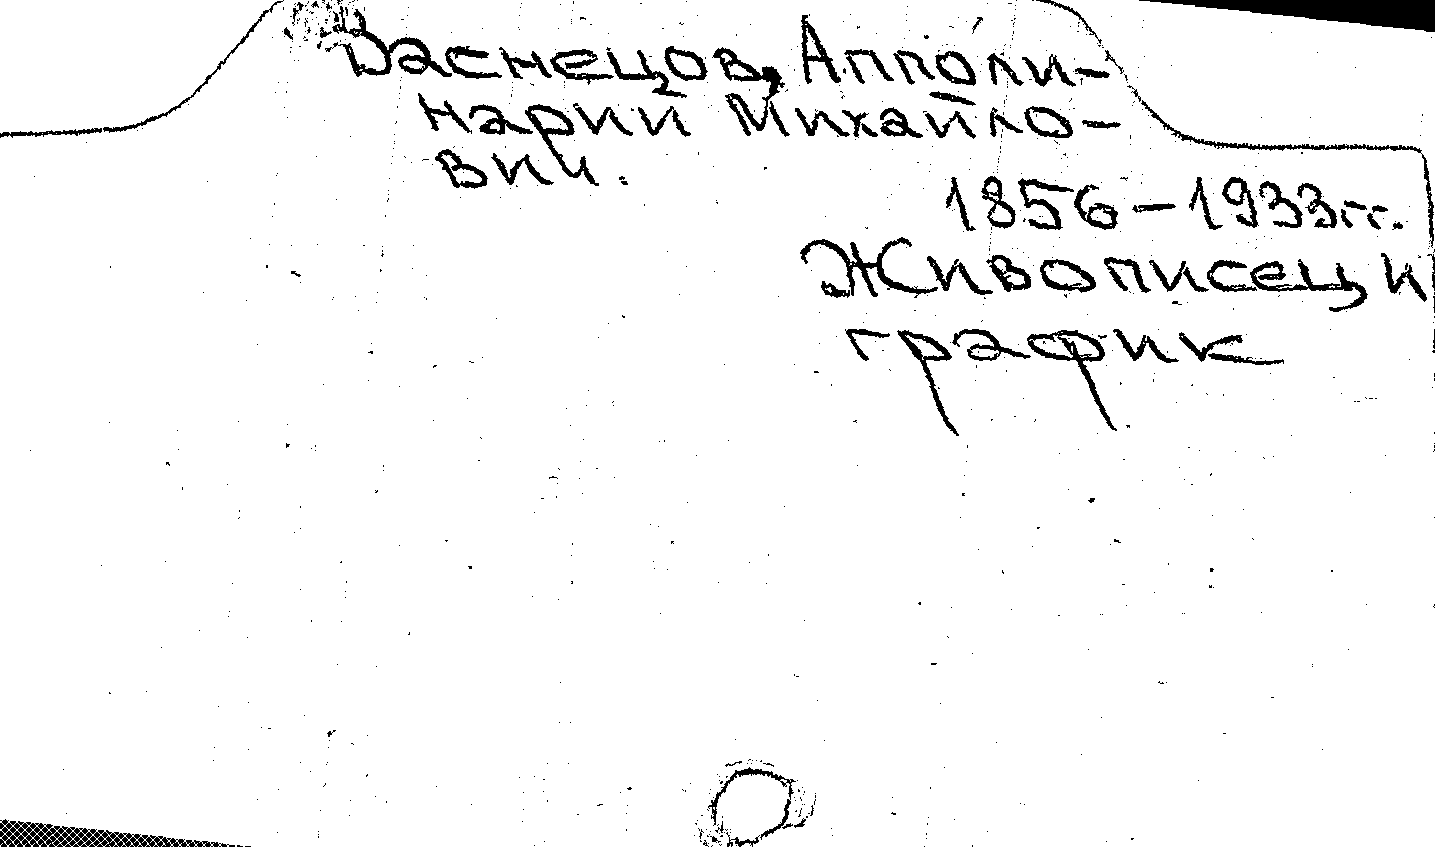 Васнецов, Апполи-
нарий Михайло-
вич.
1856-1933гг.
Живописец и
график